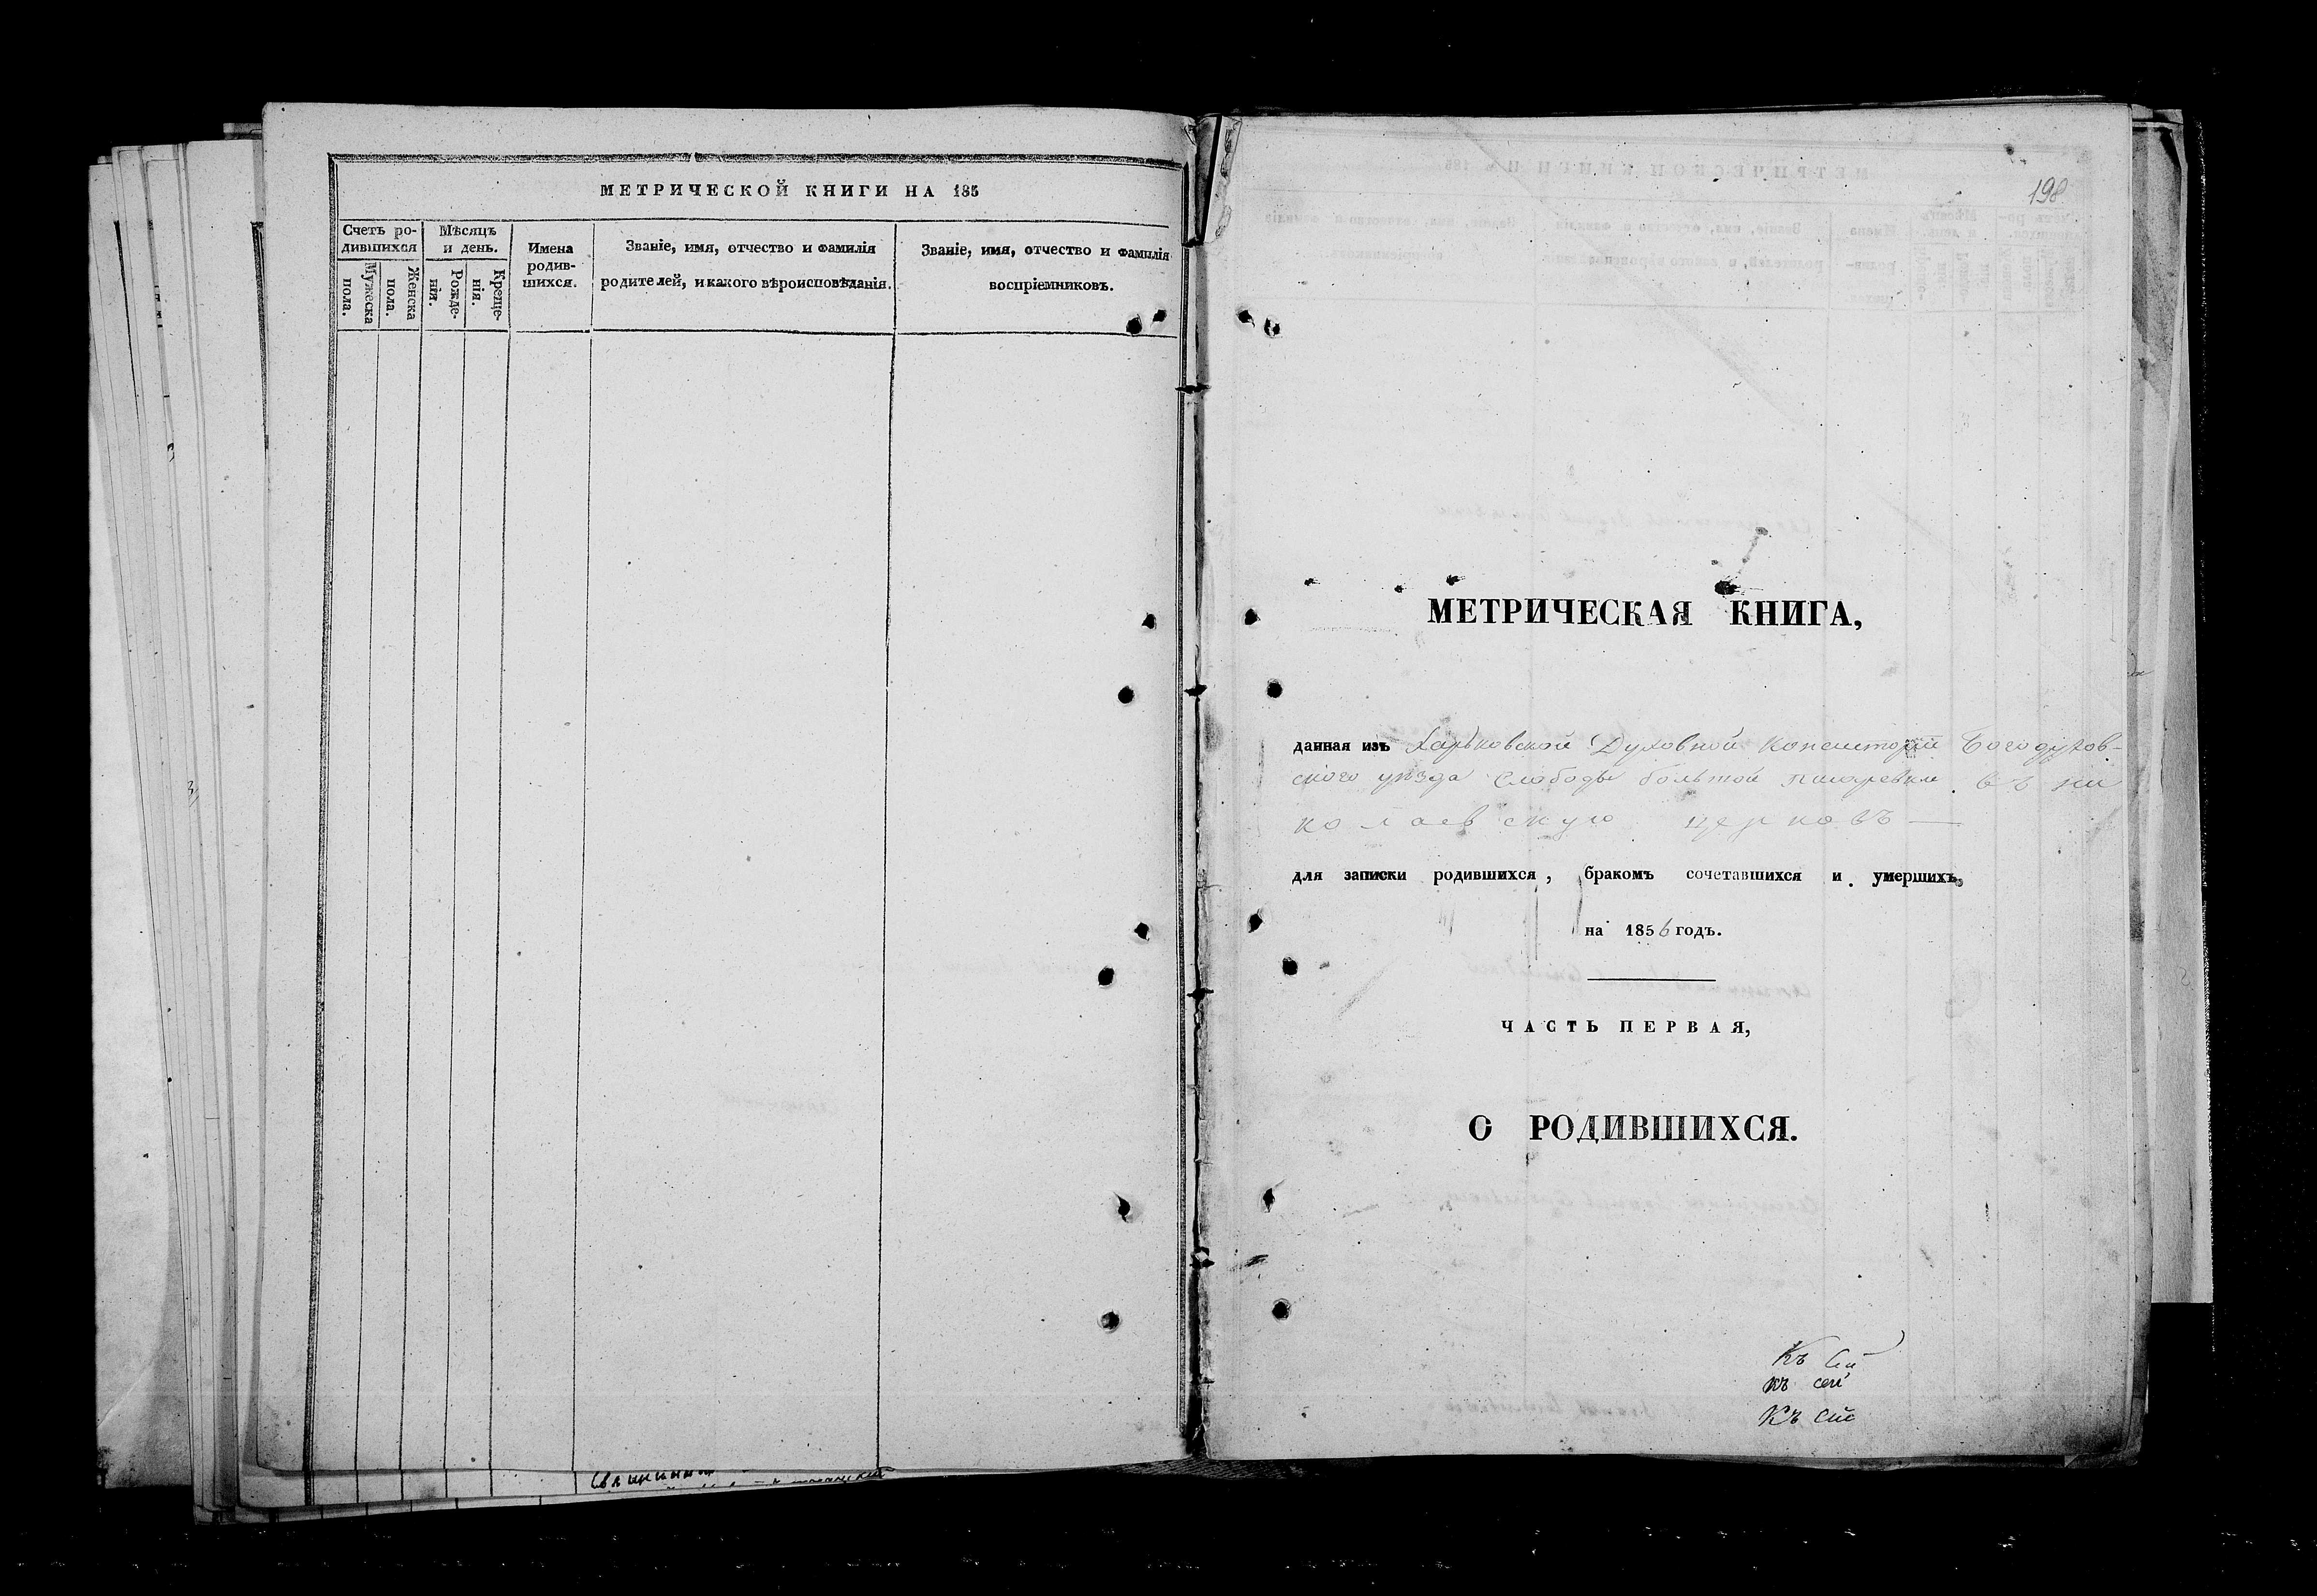 МЕТРИЧЕСКОЙ КНИГИ НА 185
Счетъ ро-
дившихся
Мужеска
пола.
Женска
пола.
Мѣсяцъ
и день.
Рожде-
нія.
Креще-
нія.
Имена
родив-
шихся.
Званіе, имя, отчество и фамилія
родителей, и какого вѣроисповѣданія.
Званіе, имя, отчество и фамилія
воспріемниковъ.
198
МЕТРИЧЕСКАЯ КНИГА,
данная изъ Харьковской Духовной Консисторіи Богодухов-
ского уѣзда Слободы большой писаревки въ ни
колаевскую церковь —
для записки родившихся, бракомъ сочетавшихся и умершихъ,
на 1856 годъ.
ЧАСТЬ ПЕРВАЯ,
О РОДИВШИХСЯ.
Къ Сей
къ сей
Къ сей